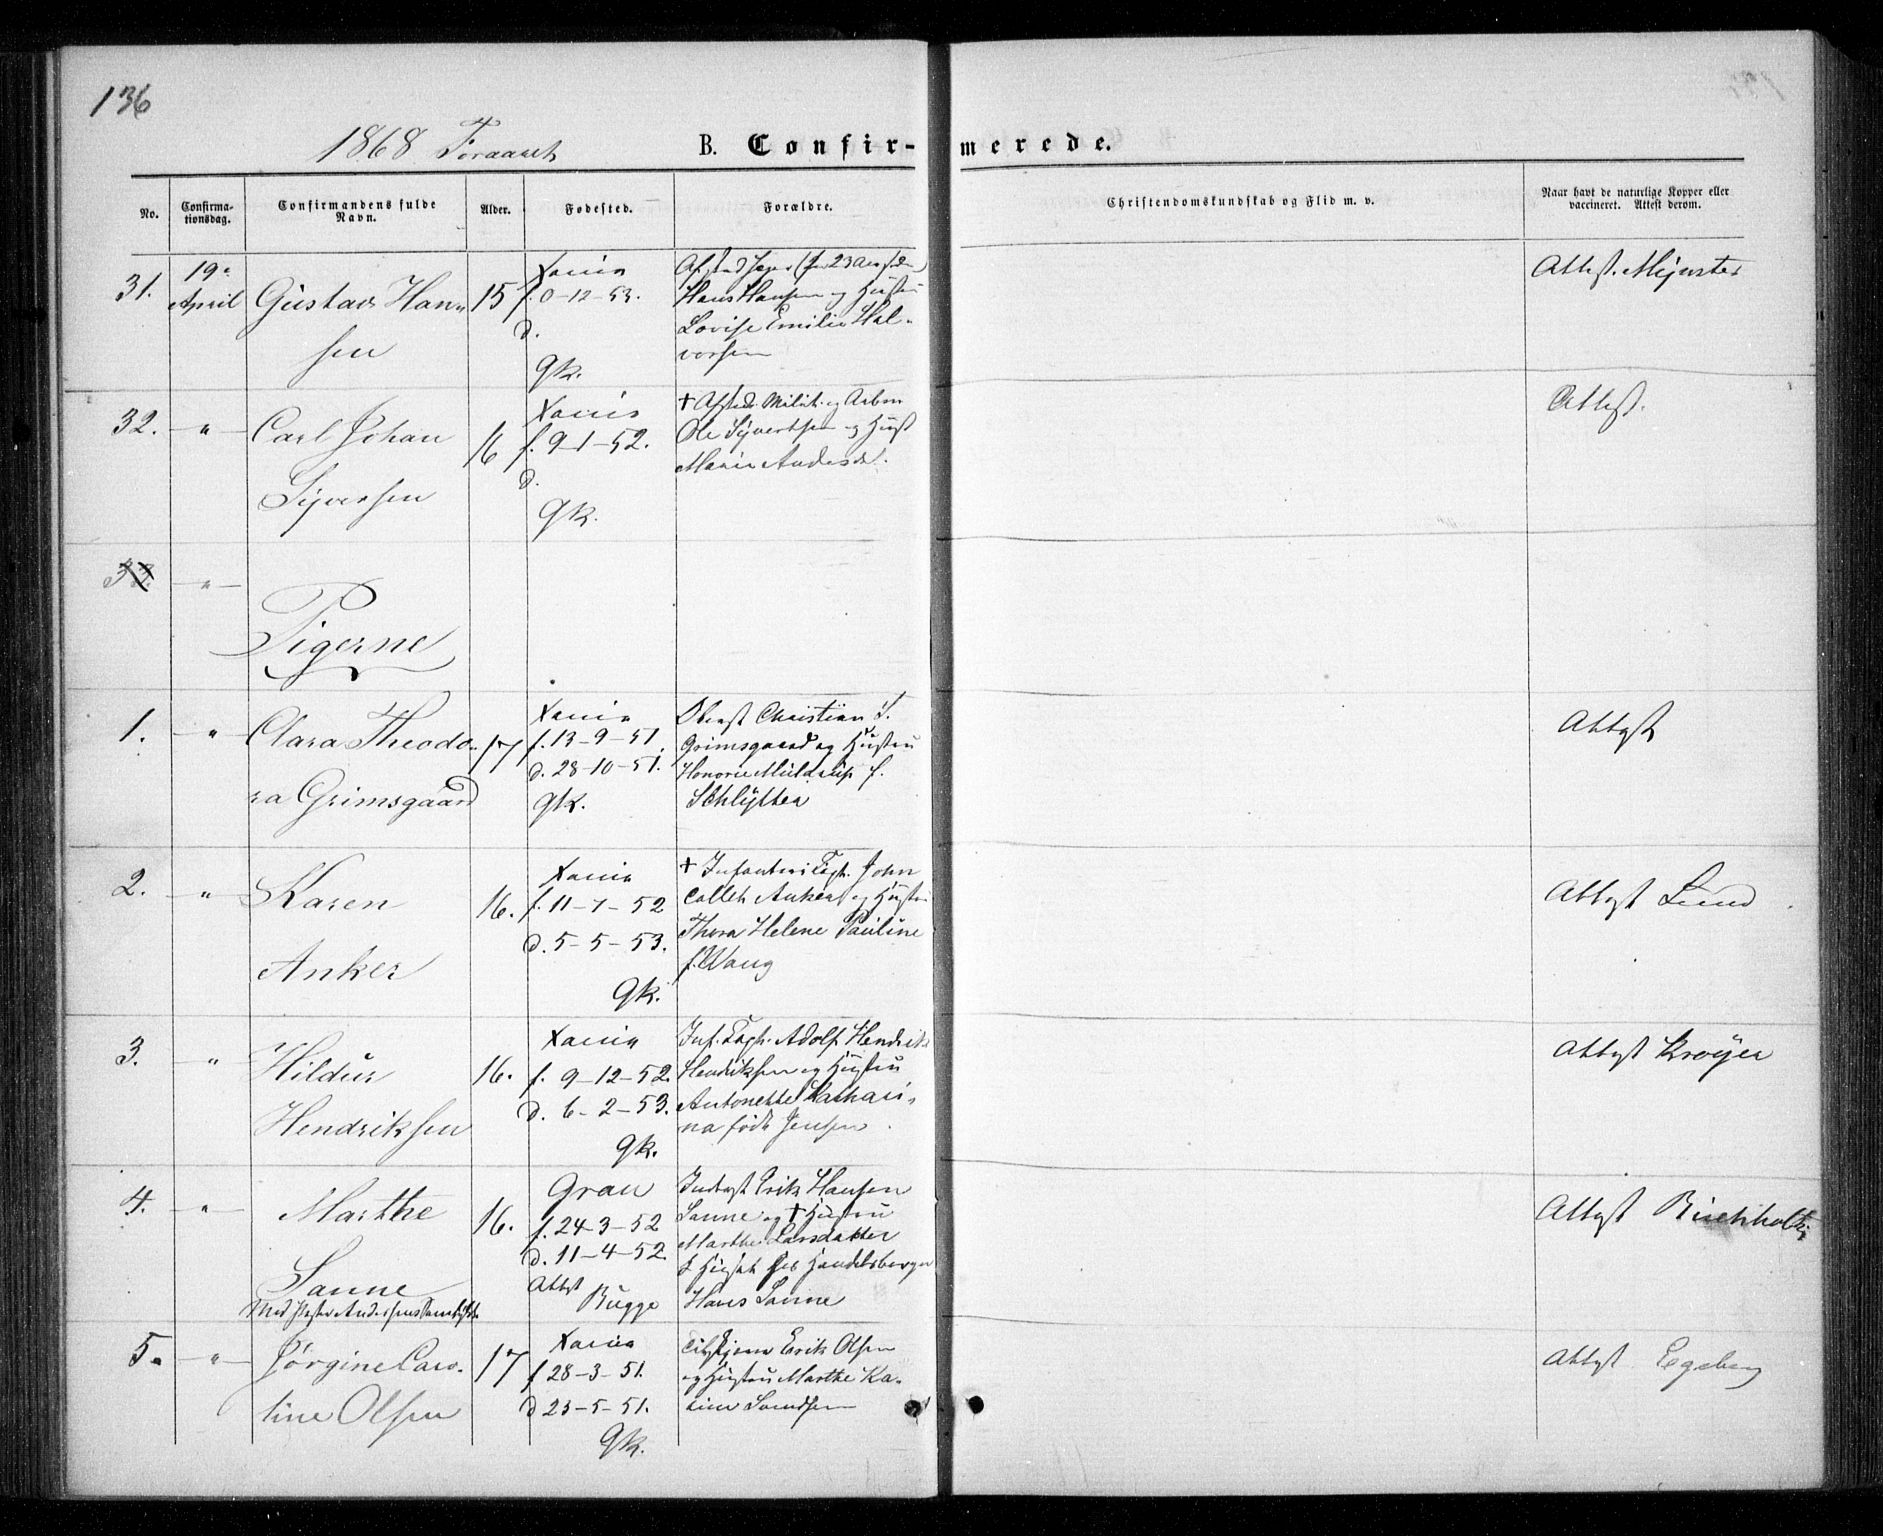 136
1868 Foraaret
B. Confir-merede.
No.
Confirma-
tionsdag.
Confirmandens fulde
Navn.
Alder.
Fødested.
Forældre.
Christendomskundskab og Flid m. v.
Naar havt de naturlige Kopper eller
vaccineret. Attest derom.
31.
19de
April
Gustav Han-
sen
15
Xania
f. 0-12-53.
d.
gk.
Hans Hansen og Hustru
Lovise Emilie Hal-
vorsen
Attest. Mynster
32.
"
Carl Johan
Syversen
16
Xania
f. 9-1-52.
d.
gk.
† Afsked. Milit. og Arbm
Ole Syvertsen og Hust
Marie Andersd.
Attest.
33.
"
Pigerne
1.
"
Clara Theodo-
ra Grimsgaard
17
Xania
f. 13-9-51.
d. 28-10-51.
gk.
Oberst Christian S.
Grimsgaard og Hustru
Honorie Muldrup f.
Schlytter
Attest
2.
"
Karen
Anker
16.
Xania
f. 11-7-52
d. 5-5-53.
gk.
† Infanteri Capt. John
Collett Anker og Hustru
Thora Helene Pauline
f. Wang
Attest Lund
3.
"
Hildur
Hendriksen
16.
Xania
f. 9-12-52.
d. 6-2-53.
gk.
Inf. Capt. Adolf Hendrik
Hendriksen og Hustru
Antonette Cathari-
na født Jensen
Attest Krøyer
4.
"
Marthe
Sanne
16.
Gran
f. 24-3-52
d. 11-4-52.
Attest
Bugge
Inderst Erik Hansen
Sanne og † Hustru
Marthe Larsdatter
Handelsborger
Hans Sanne
Attest Buchholtz
Med Pastor Andersens Samtykke
5.
"
Jørgine Caro-
line Olsen
17
Xania
f 28-3-51.
d 23-5-51.
gk.
Erik Olsen
og Hustru Marthe Ka-
rine Svendsen
Attest Egeberg